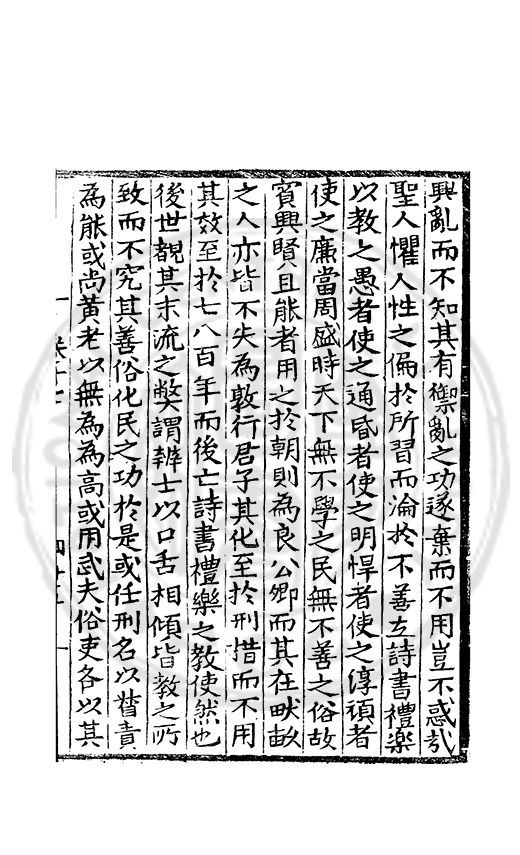 興亂而不知其有禦亂之功遂棄而不用豈不惑哉
聖人懼人性之偏於所習而淪於不善立詩書禮樂
以教之愚者使之通昏者使之明悍者使之淳頑者
使之廉當周盛時天下無不學之民無不善之俗故
賓興賢且能者用之於朝則為良公卿而其在畎畝
之人亦皆不失為敦行君子其化至於刑措而不用
其效至於七八百年而後亡詩書禮樂之教使然也
後世覩其末流之獘謂辨士以口舌相傾皆教之所
致而不究其善俗化民之功於是或任刑名以督責
為能或尚黃老以無為為高或用武夫俗吏各以其